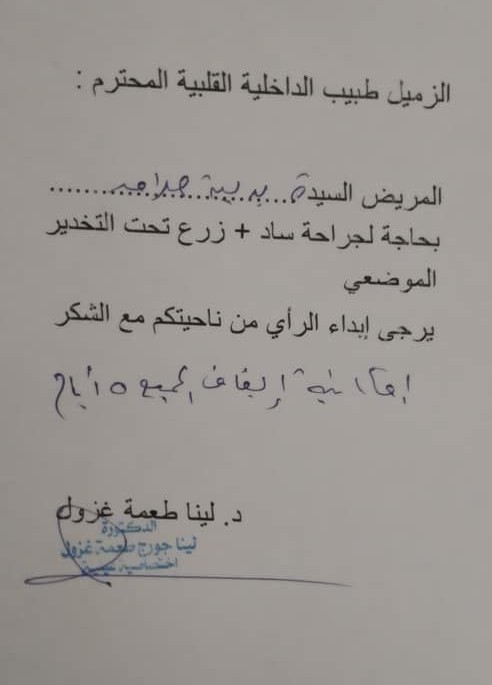 الزميل طبيب الداخلية القلبية المحترم :
المريض السيدة.. بديعة ..........
بحاجة لجراحة ساد + زرع تحت التخدير
الموضعي
يرجى إبداء الرأي من ناحيتكم مع الشكر
إمكانية إيقاف المميع ٥ أيام
د. لينا طعمة غزول
الدكتورة
لينا جورج طعمة غزول
اختصاصية عينية